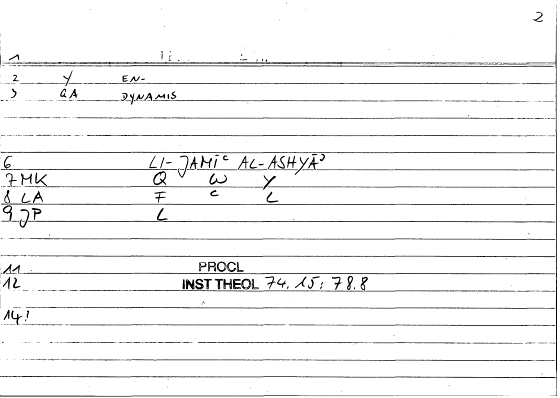 2
1
2 Y EN-
3 GA DYNAMIS
6 LI- JAMĪʿ AL-ASHYĀʾ
7 MK Q W Y
8 LA F ʿ L
9 JP L
11 PROCL
12 INST THEOL 74.15; 78.8
14!